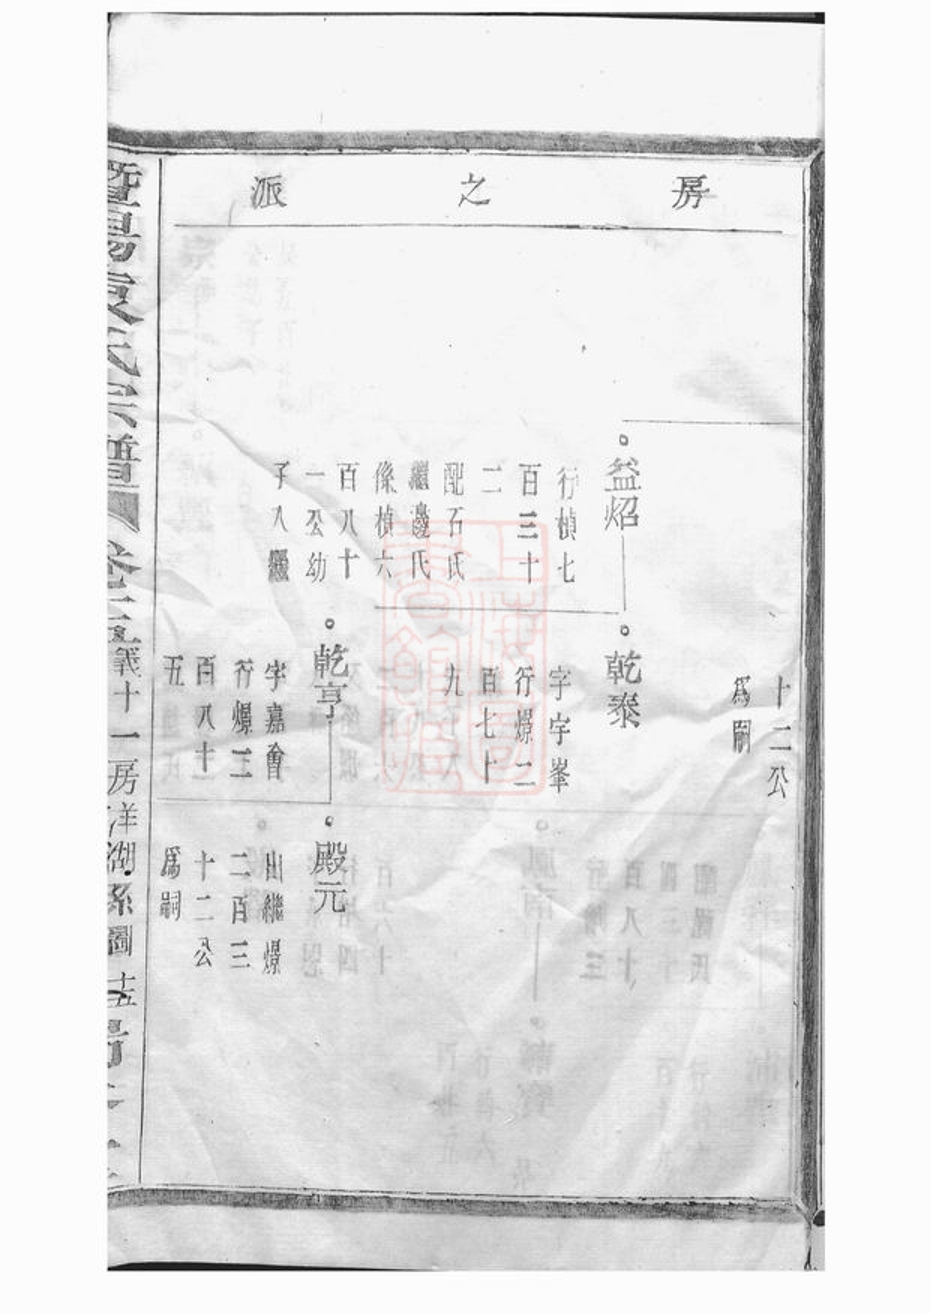 房之派
十二公
為嗣
益炤
行楨七
百三十
二
配石氏
繼邊氏
係楨六
百八十
一公幼
子入繼
乾泰
字字峯
行爆二
百七十
九
乾亨
字嘉會
行爆三
百八十
五
殿元
出繼爆
二百三
十二公
爲嗣
暨陽袁氏宗譜
義十一房洋湖系圖 十五